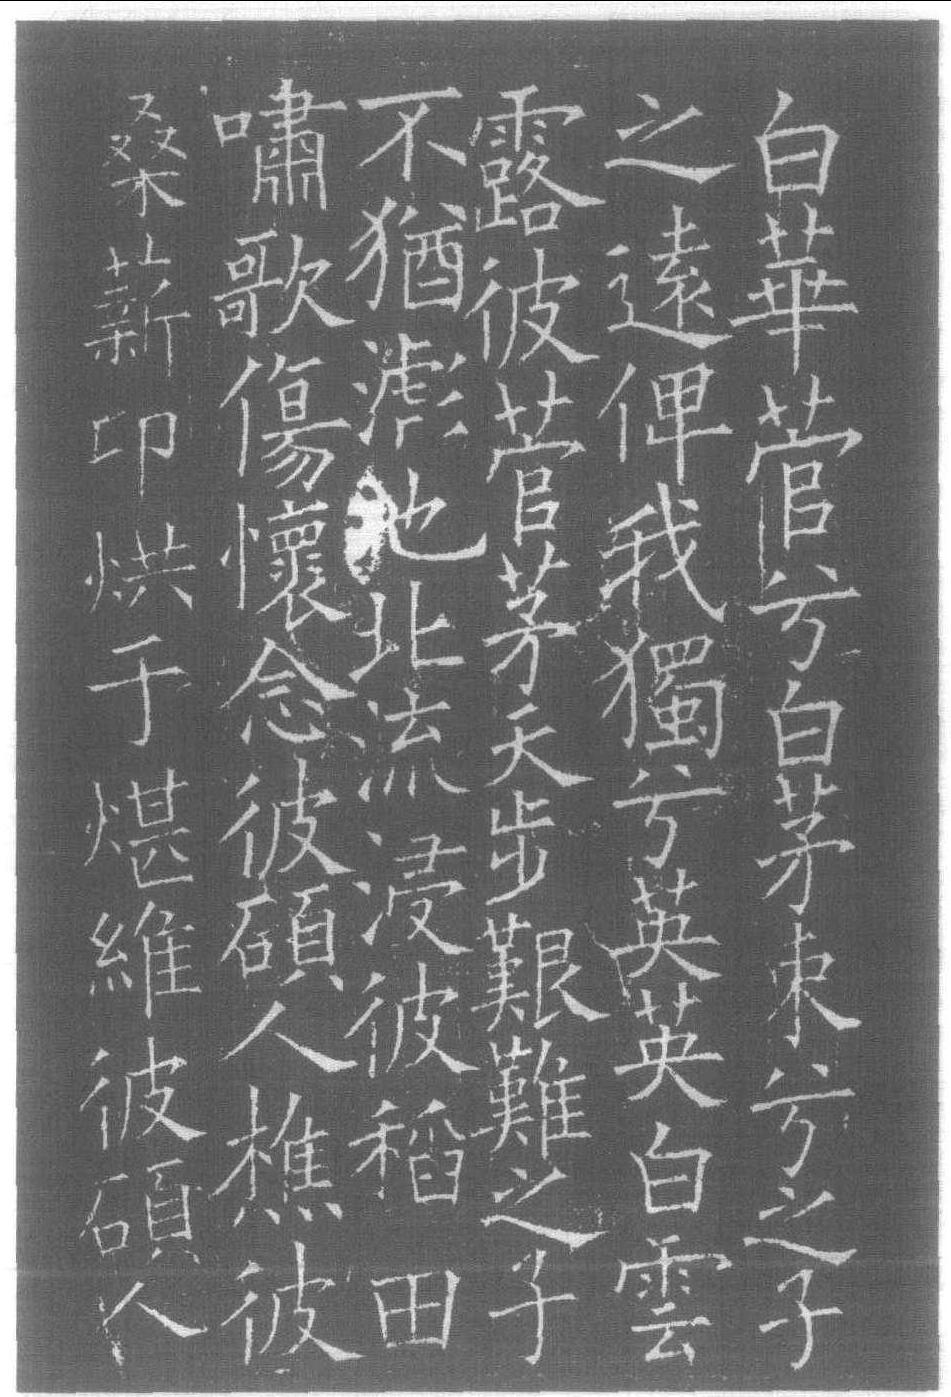 白華菅兮白茅束兮之子
之遠俾我獨兮英英白雲
露彼菅茅天步艱難之子
不猶滮池北流浸彼稻田
嘯歌傷懷念彼碩人樵彼
桑薪卬烘于煁維彼碩人